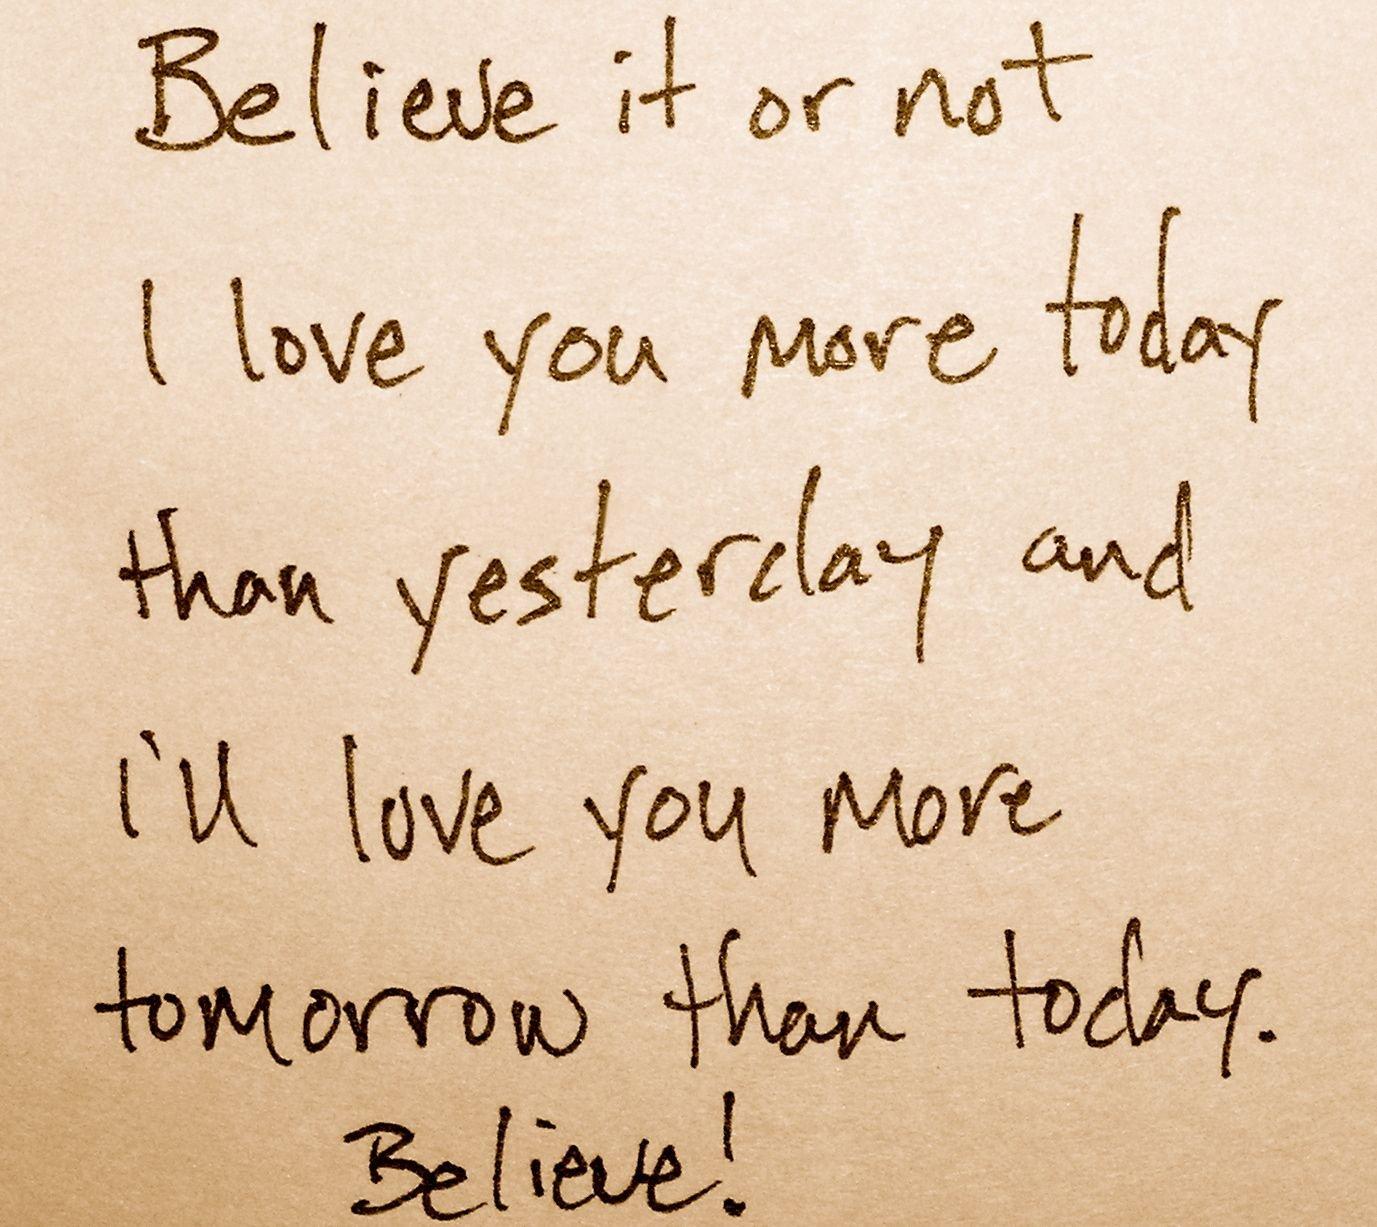 Believe it or not
I love you more today
than yesterday and
i'll love you more
tomorrow than today.
Believe!